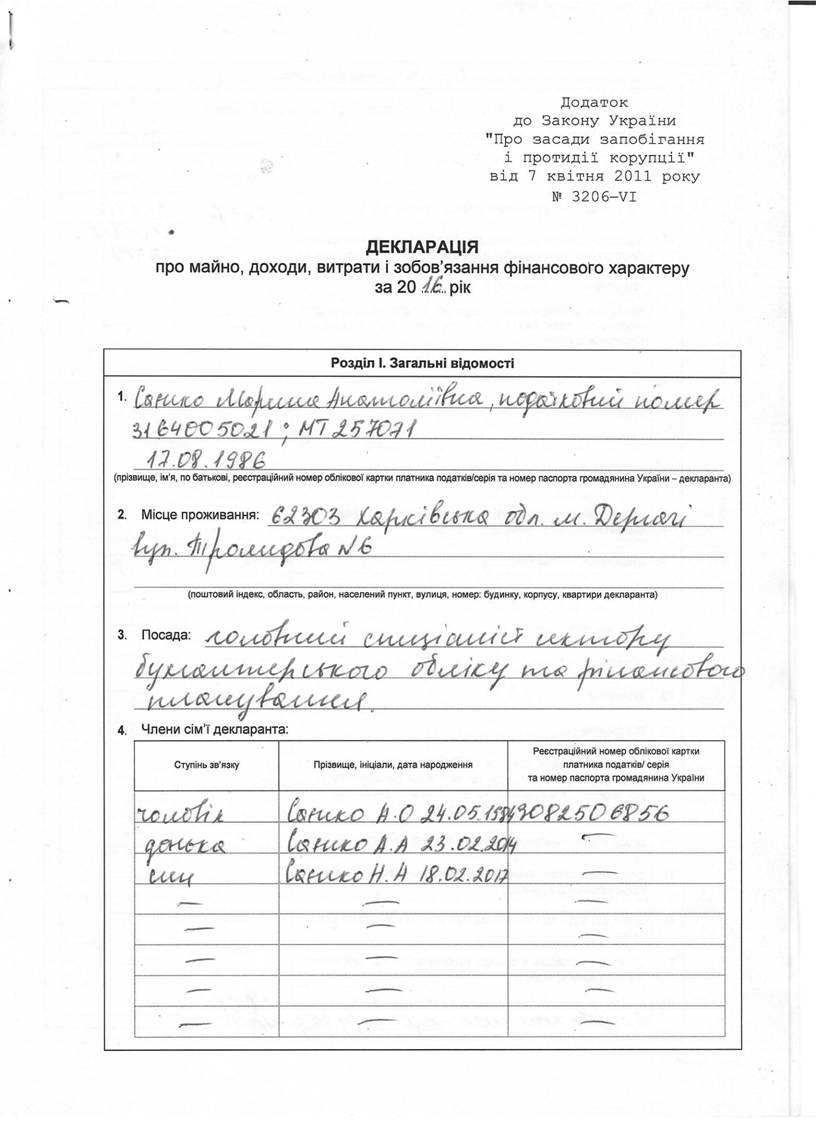 Додаток
до Закону України
"Про засади запобігання
і протидії корупції"
від 7 квітня 2011 року
№ 3206–VI
ДЕКЛАРАЦІЯ
про майно, доходи, витрати і зобов’язання фінансового характеру
за 20 16 рік
Розділ I. Загальні відомості
1. Санько Марина Анатоліївна, податковий номер
3164005021; МТ 257071
17.08.1986
(прізвище, ім’я, по батькові, реєстраційний номер облікової картки платника податків/серія та номер паспорта громадянина України – декларанта)
2. Місце проживання: 62303 Харківська обл. м. Дергачі
вул. №6
(поштовий індекс, область, район, населений пункт, вулиця, номер: будинку, корпусу, квартири декларанта)
3. Посада: головний спеціаліст сектору
бухгалтерського обліку та фінансового
планування.
4. Члени сім’ї декларанта:
Ступінь зв’язку Прізвище, ініціали, дата народження Реєстраційний номер облікової картки
платника податків/ серія
та номер паспорта громадянина України
чоловік Санько А.О 24.05.1984 3082506856
донька Санько А.А 23.02.2014 —
син Санько Н.А 18.02.2017 —
— — —
— — —
— — —
— — —
— — —